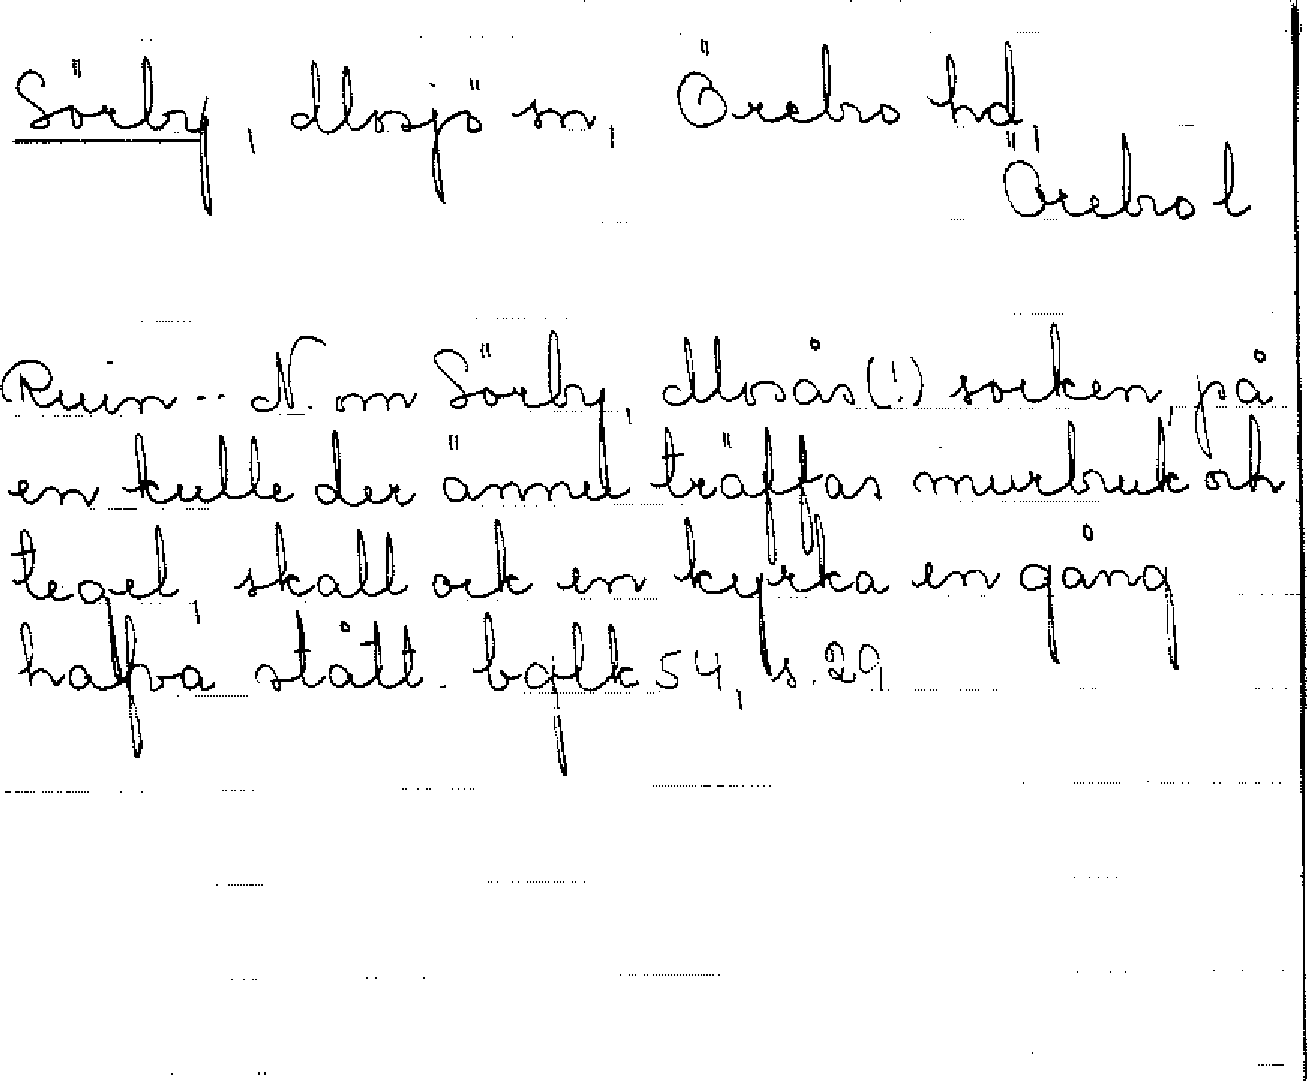 Sörby, Mosjö sn, Örebro hd,
Örebro l
Ruin-- N. om Sörby, Mosås(!) socken, på
en kulle der ännu träffas murbruk och
tegel, skall ock en kyrka en gång
hafva stått. bglk 54, s. 29